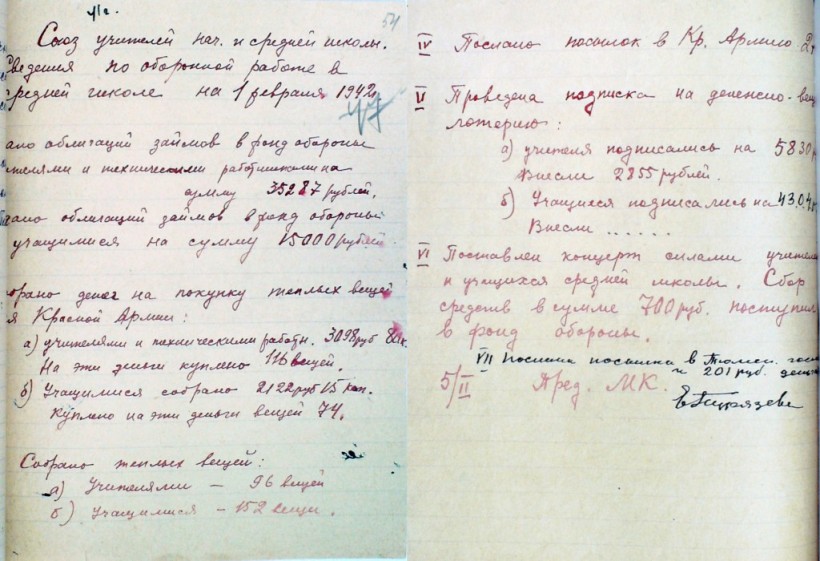 54
Союз учителей нач. и средней школы.
Сведения по оборонной работе в
средней школе на 1 февраля 1942г.
47
ано облигаций займов в фонд обороны
телями и техническими работниками на
сумму 35287 рублей.
дано облигаций займов в фонд обороны
учащимися на сумму 15000 рублей.
обрано денег на покупку теплых вещей
я Красной Армии:
а) учителями и техническими работн. 3098 руб
На эти деньги куплено 116 вещей.
б) Учащимися собрано 2122 руб 15 коп.
Куплено на эти деньги вещей 74.
Собрано теплых вещей:
а) Учителями – 96 вещей
б) Учащимися – 152 вещи.
IV Послано посылок в Кр. Армию
V Проведена подписка на денежно-вещ
лотерею:
а) учителя подписались на 5830
Внесли 2855 рублей.
б) Учащихся подписались на 4304
Внесли ......
VI Поставлен концерт силами учителе
и учащихся средней школы. Сбор
средств в сумме 700 руб. поступил
в фонд обороны.
VII посылка в Тюмен. гос
и 201 руб. ден
5/II Пред. МК.